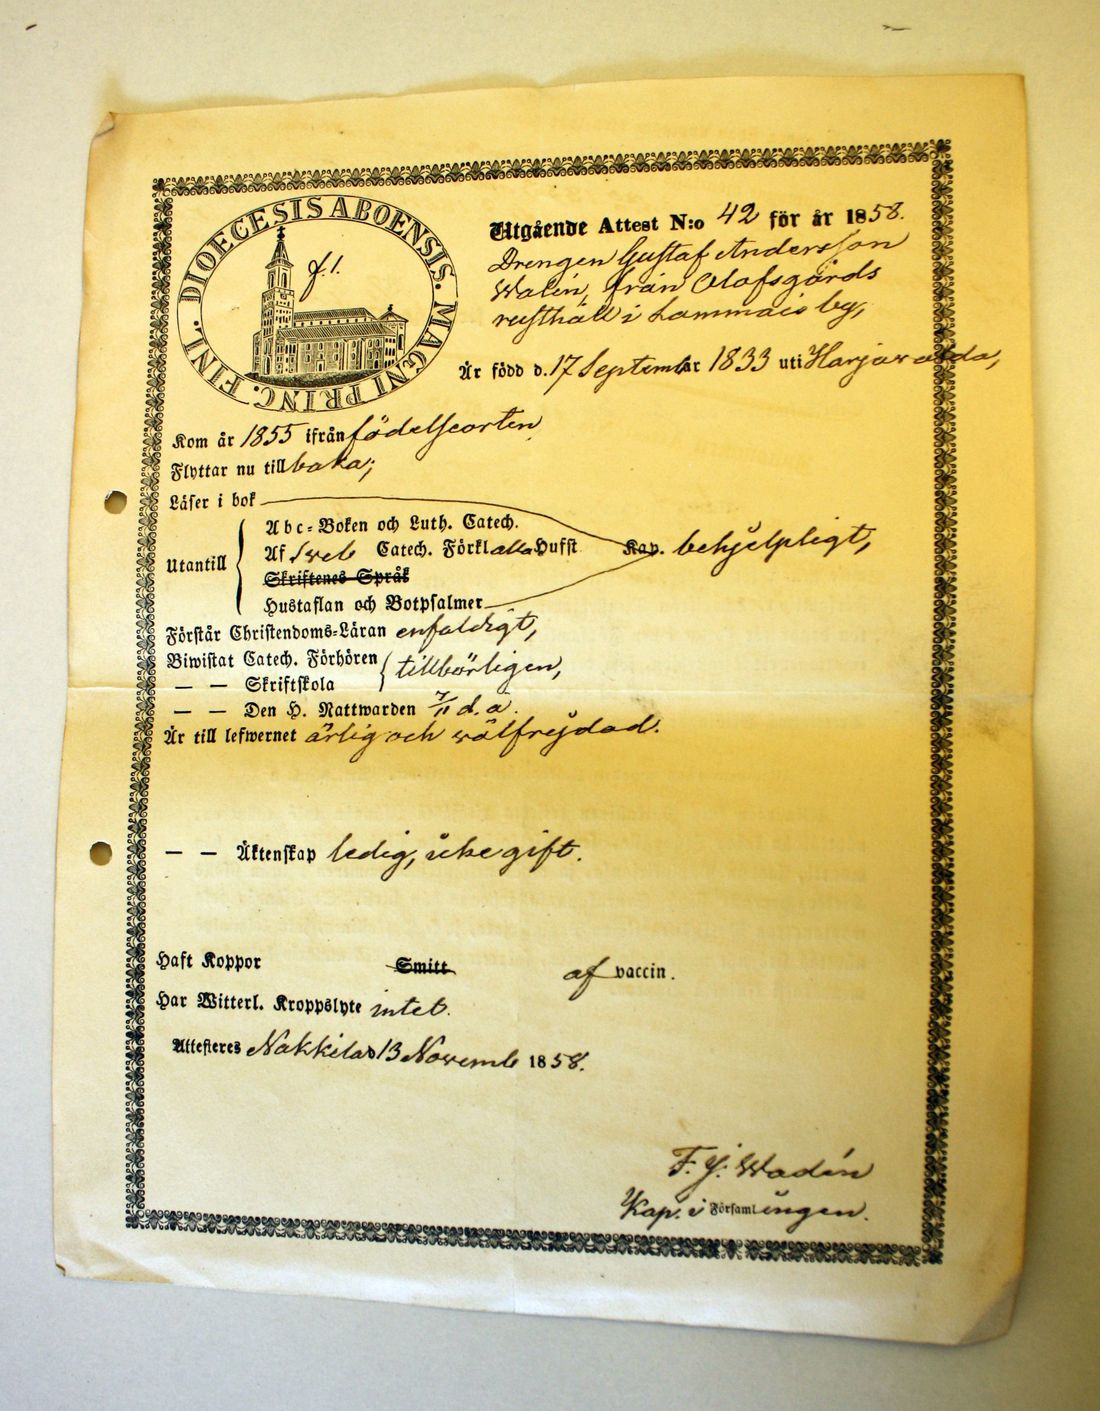 DIOECESIS ABOENSIS. MAGNI PRINC. FINL.
f. 1.
Utgående Attest N:o 42 för år 1858.
Drengen Gustaf Andersson
Walin, från Olofsgårds
rusthåll i Lammais by,
Är född d. 17 September 1833 uti Harjawalda,
Kom år 1855 ifrån födelseorten
Flyttar nu tillbaka;
Läser i bok
Utantill
Abc-Boken och Luth. Catech.
Af Sveb Catech. Förkl alla Husst Kap. behjelpligt,
Skriftenes Språk
Hustaflan och Botpsalmer
Förstår Christendoms-Läran enfaldigt,
Biwistat Catech. Förhören
— — Skriftskola tillbörligen,
— — Den H. Nattwarden 7/11 d. å.
Är till lefwernet ärlig och wälfrejdad.
— — Äktenskap ledig, icke gift.
Haft Koppor Smitt af vaccin.
Har Witterl. Kroppslyte intet.
Attesteres Nakkila d 13 Novemb 1858.
F. J. Wadén
Kap. i Församlingen.